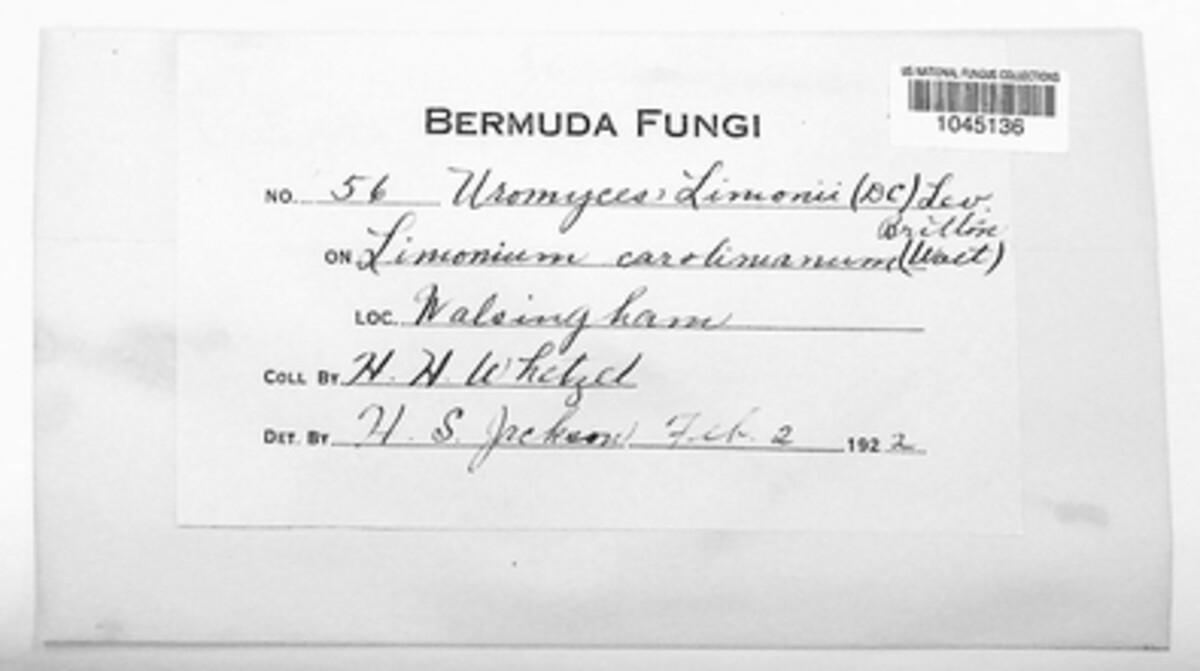 US NATIONAL FUNGUS COLLECTIONS
1045136
BERMUDA FUNGI
NO. 56 Uromyces Limonii (DC) Lev.
Britton
ON Limonium carolinianum (Walt)
LOC. Walsingham
COLL BY H. H. Whetzel
DET. BY H. S. Jackson Feb. 2 1922